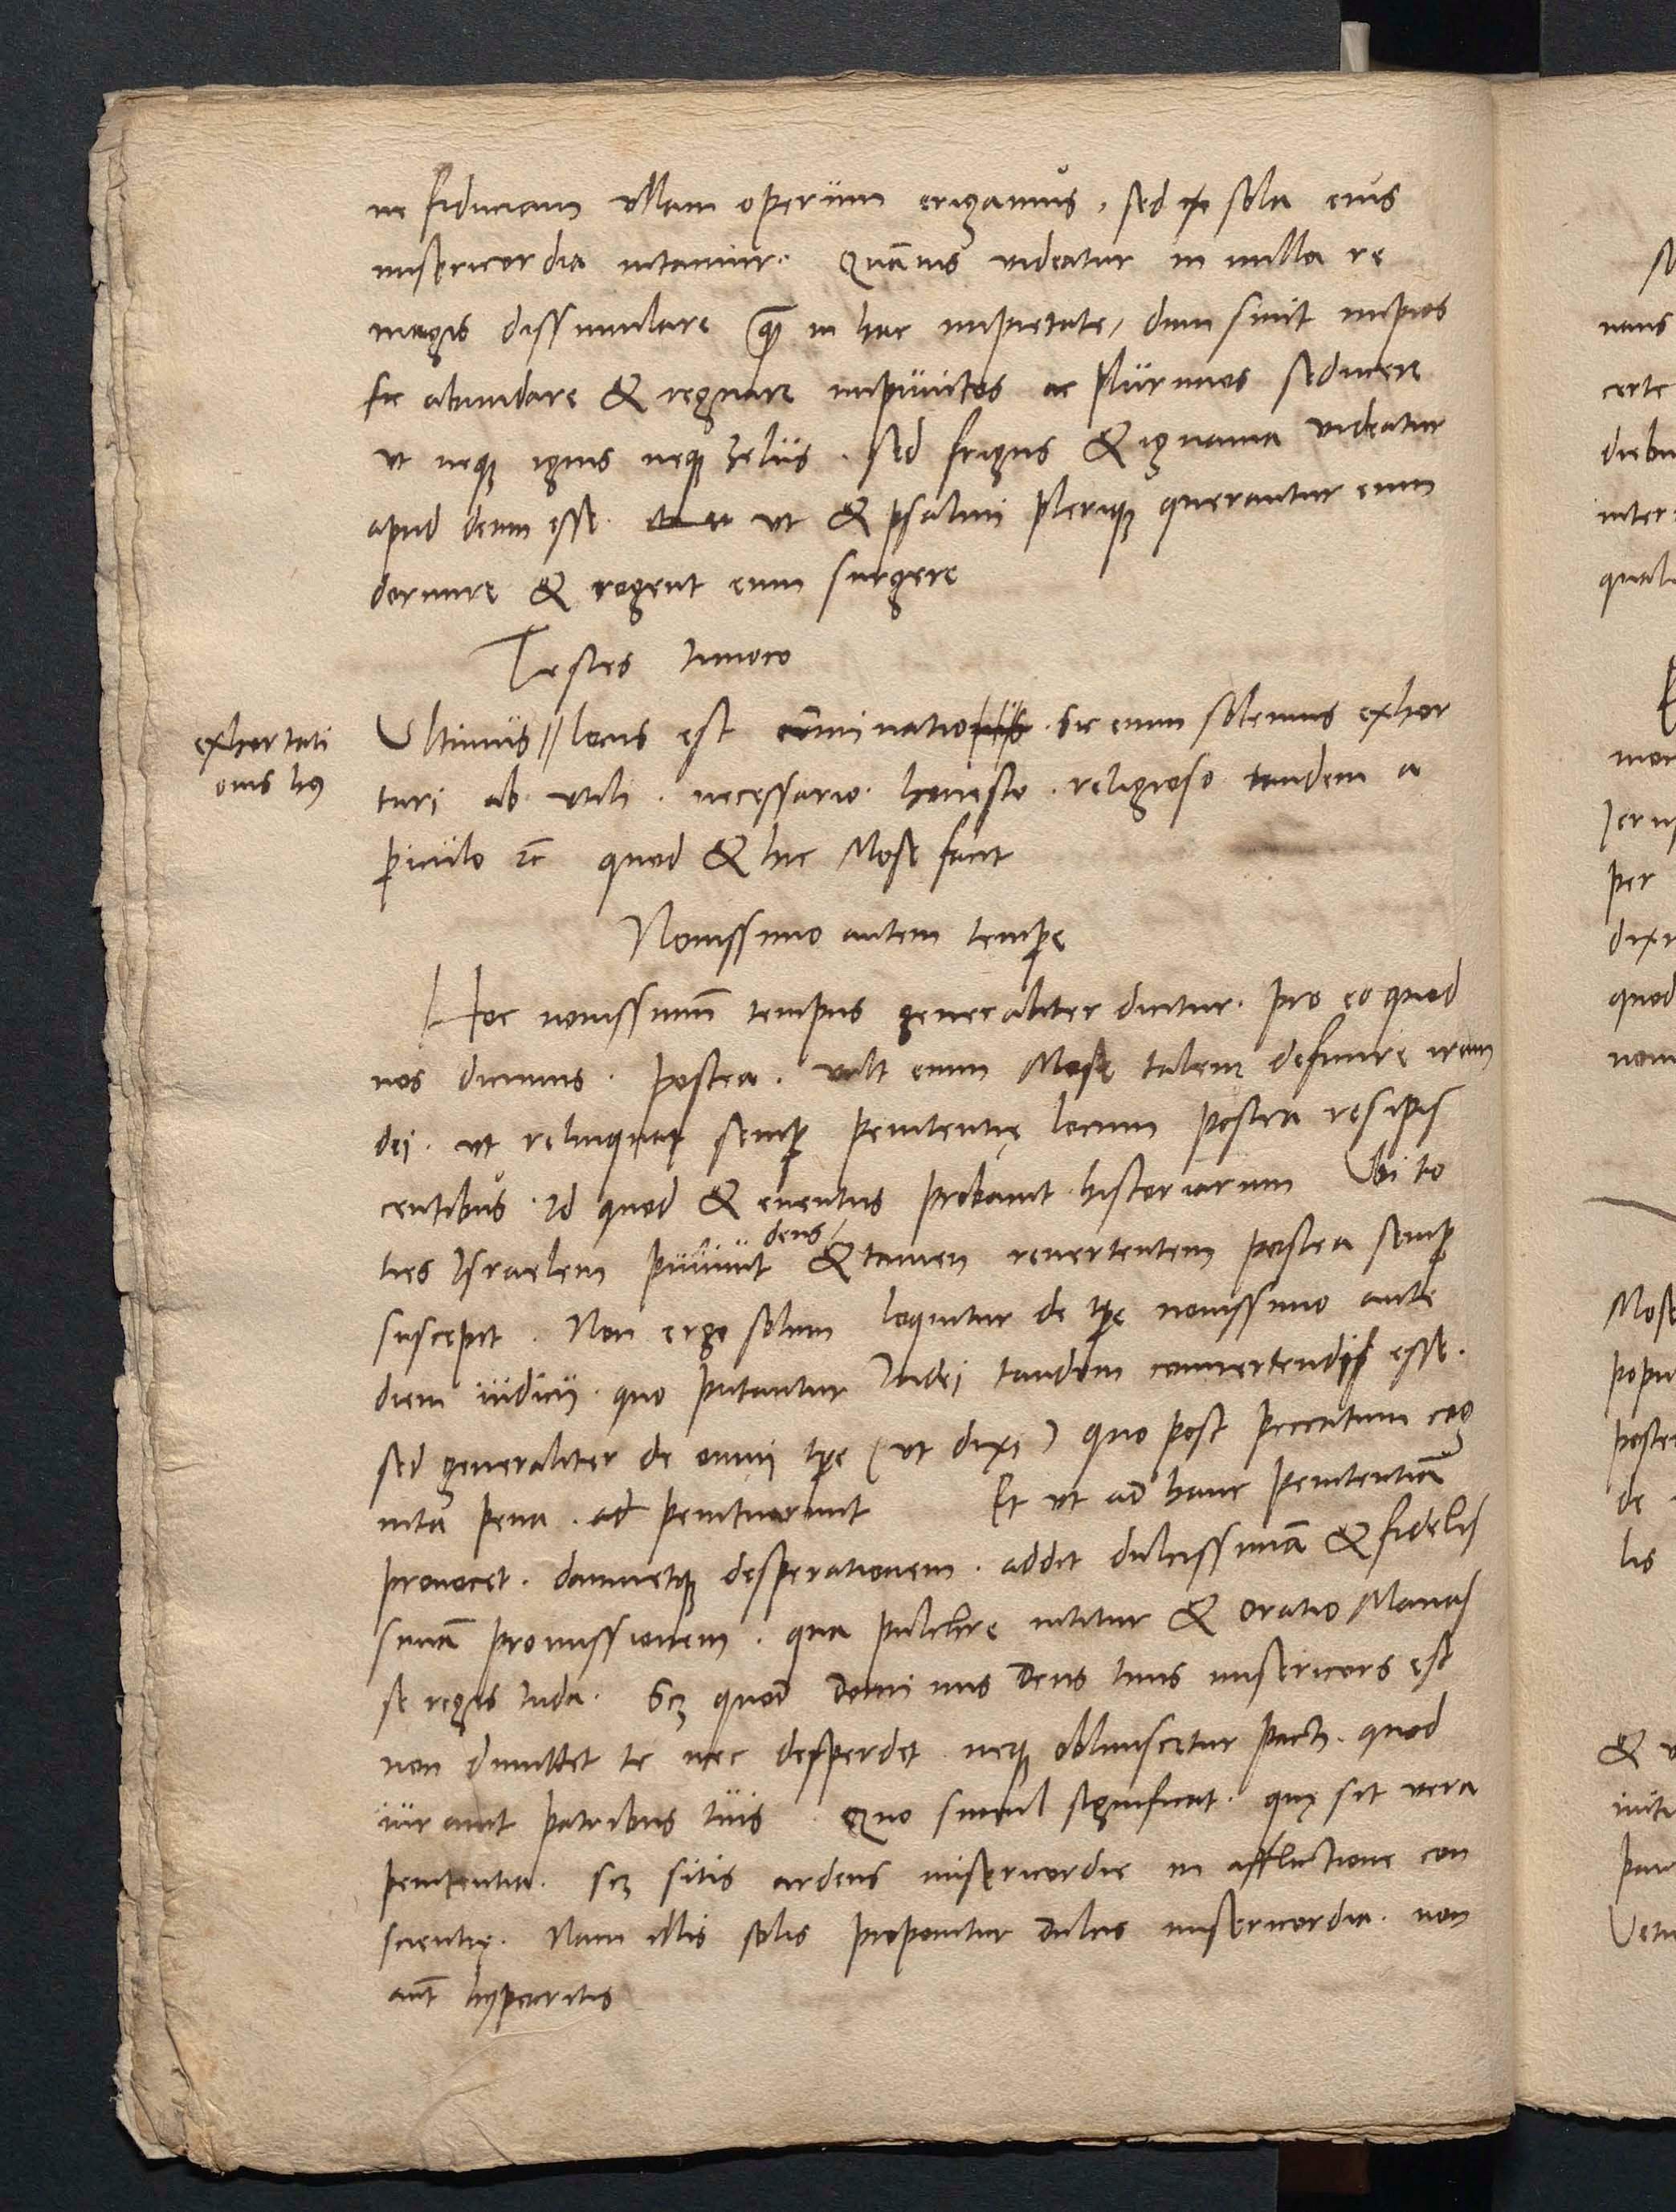 ne fiduciam vllam operum erigamus, sed sola eius
misericordia nitamur. Quãuis videatur in nulla re
magis dissimulare q̃ in hac impietate, dum sinit impios
sic abundare & regnare impunitos ac plurimos seducere
vt neq; ignis neq; zelus. sed frigus & ignauia videatur
apud deum esse. vt & psalmi pleriq; querantur eum
dormire & rogent eum surgere
Testes inuoco
exhortati
onis hui9
Vltimus // locus est cõminatio. Sic enim solemus exhor
tari ab vtili. necessario. honesto. religioso tandem a
piculo ⁊c quod & hic Mose facit
Nouissimo autem tempe
Hoc nouissimũ tempus generaliter dicitur. pro eo quod
nos dicimus. postea. vult enim Mose talem definire iram
dei. vt relinquat semp penitentię locum postea resipis
centibus. Id quod & euentus probauit historiarum Vbi to
ties Israelem puniuit deus / & tamen reuertentem postea semp
suscepit. Non ergo solum loquitur de tpe nouissimo ante
diem iudicij. quo putantur Iudei tandem conuertendi esse.
sed generaliter de omni tpe (vt dixi) quo post peccatum cog
nita pena. ad penituerunt Et vt ad hanc penitentiã
prouocet. damnetq; desperationem. addit dulcissimã & fidelis
simã promissionem. qua pulchre nititur & oratio Manas
se regis Iuda. Scz quod dominus Deus tuus misericors est
non dimittet te nec desperdet neq; obliuiscetur pacti. quod
iurauit patribus tuis Quo simul significat. quę sit vera
penitentia. scz sitis ardens misericordie in afflictione con
scientię. Nam illis solis proponitur dulcis misericordia. non
aut̃ hypocritis